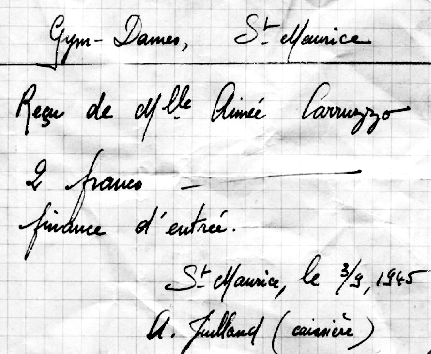 Gym-Dames, St Maurice
Reçu de Mlle Aimée Carruzzo
2 francs —
finance d'entrée.
St Maurice, le 3/9, 1945
A. Juilland (caissière)